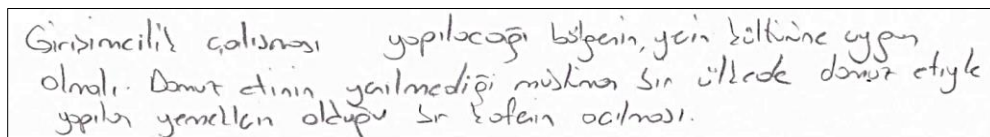 Girişimcilik çalışması yapılacağı bölgenin, yerin kültürüne uygun
olmalı. Domuz etinin yenilmediği müslüman bir ülkede domuz etiyle
yapılan yemeklerin olduğu bir kafenin açılması.